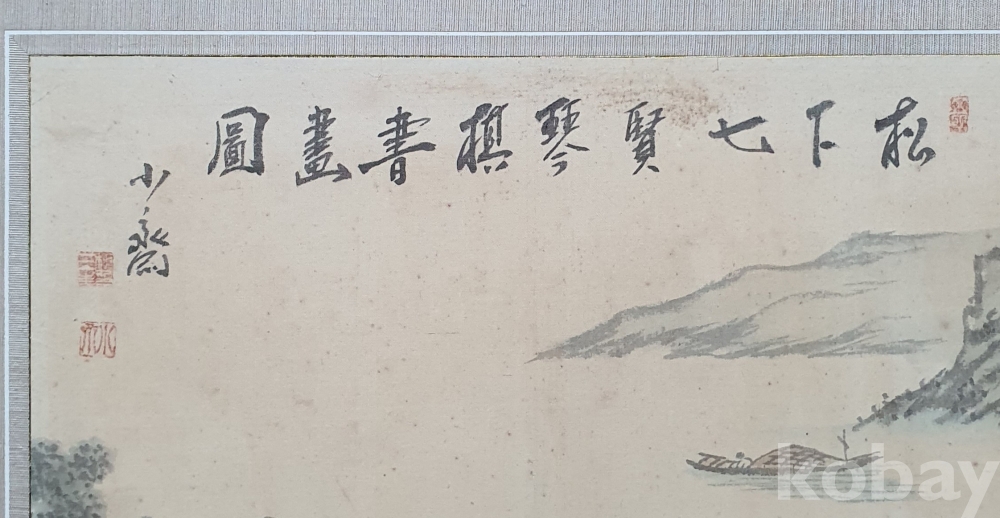 松下七賢琴棋書畫圖
少齋
kobay